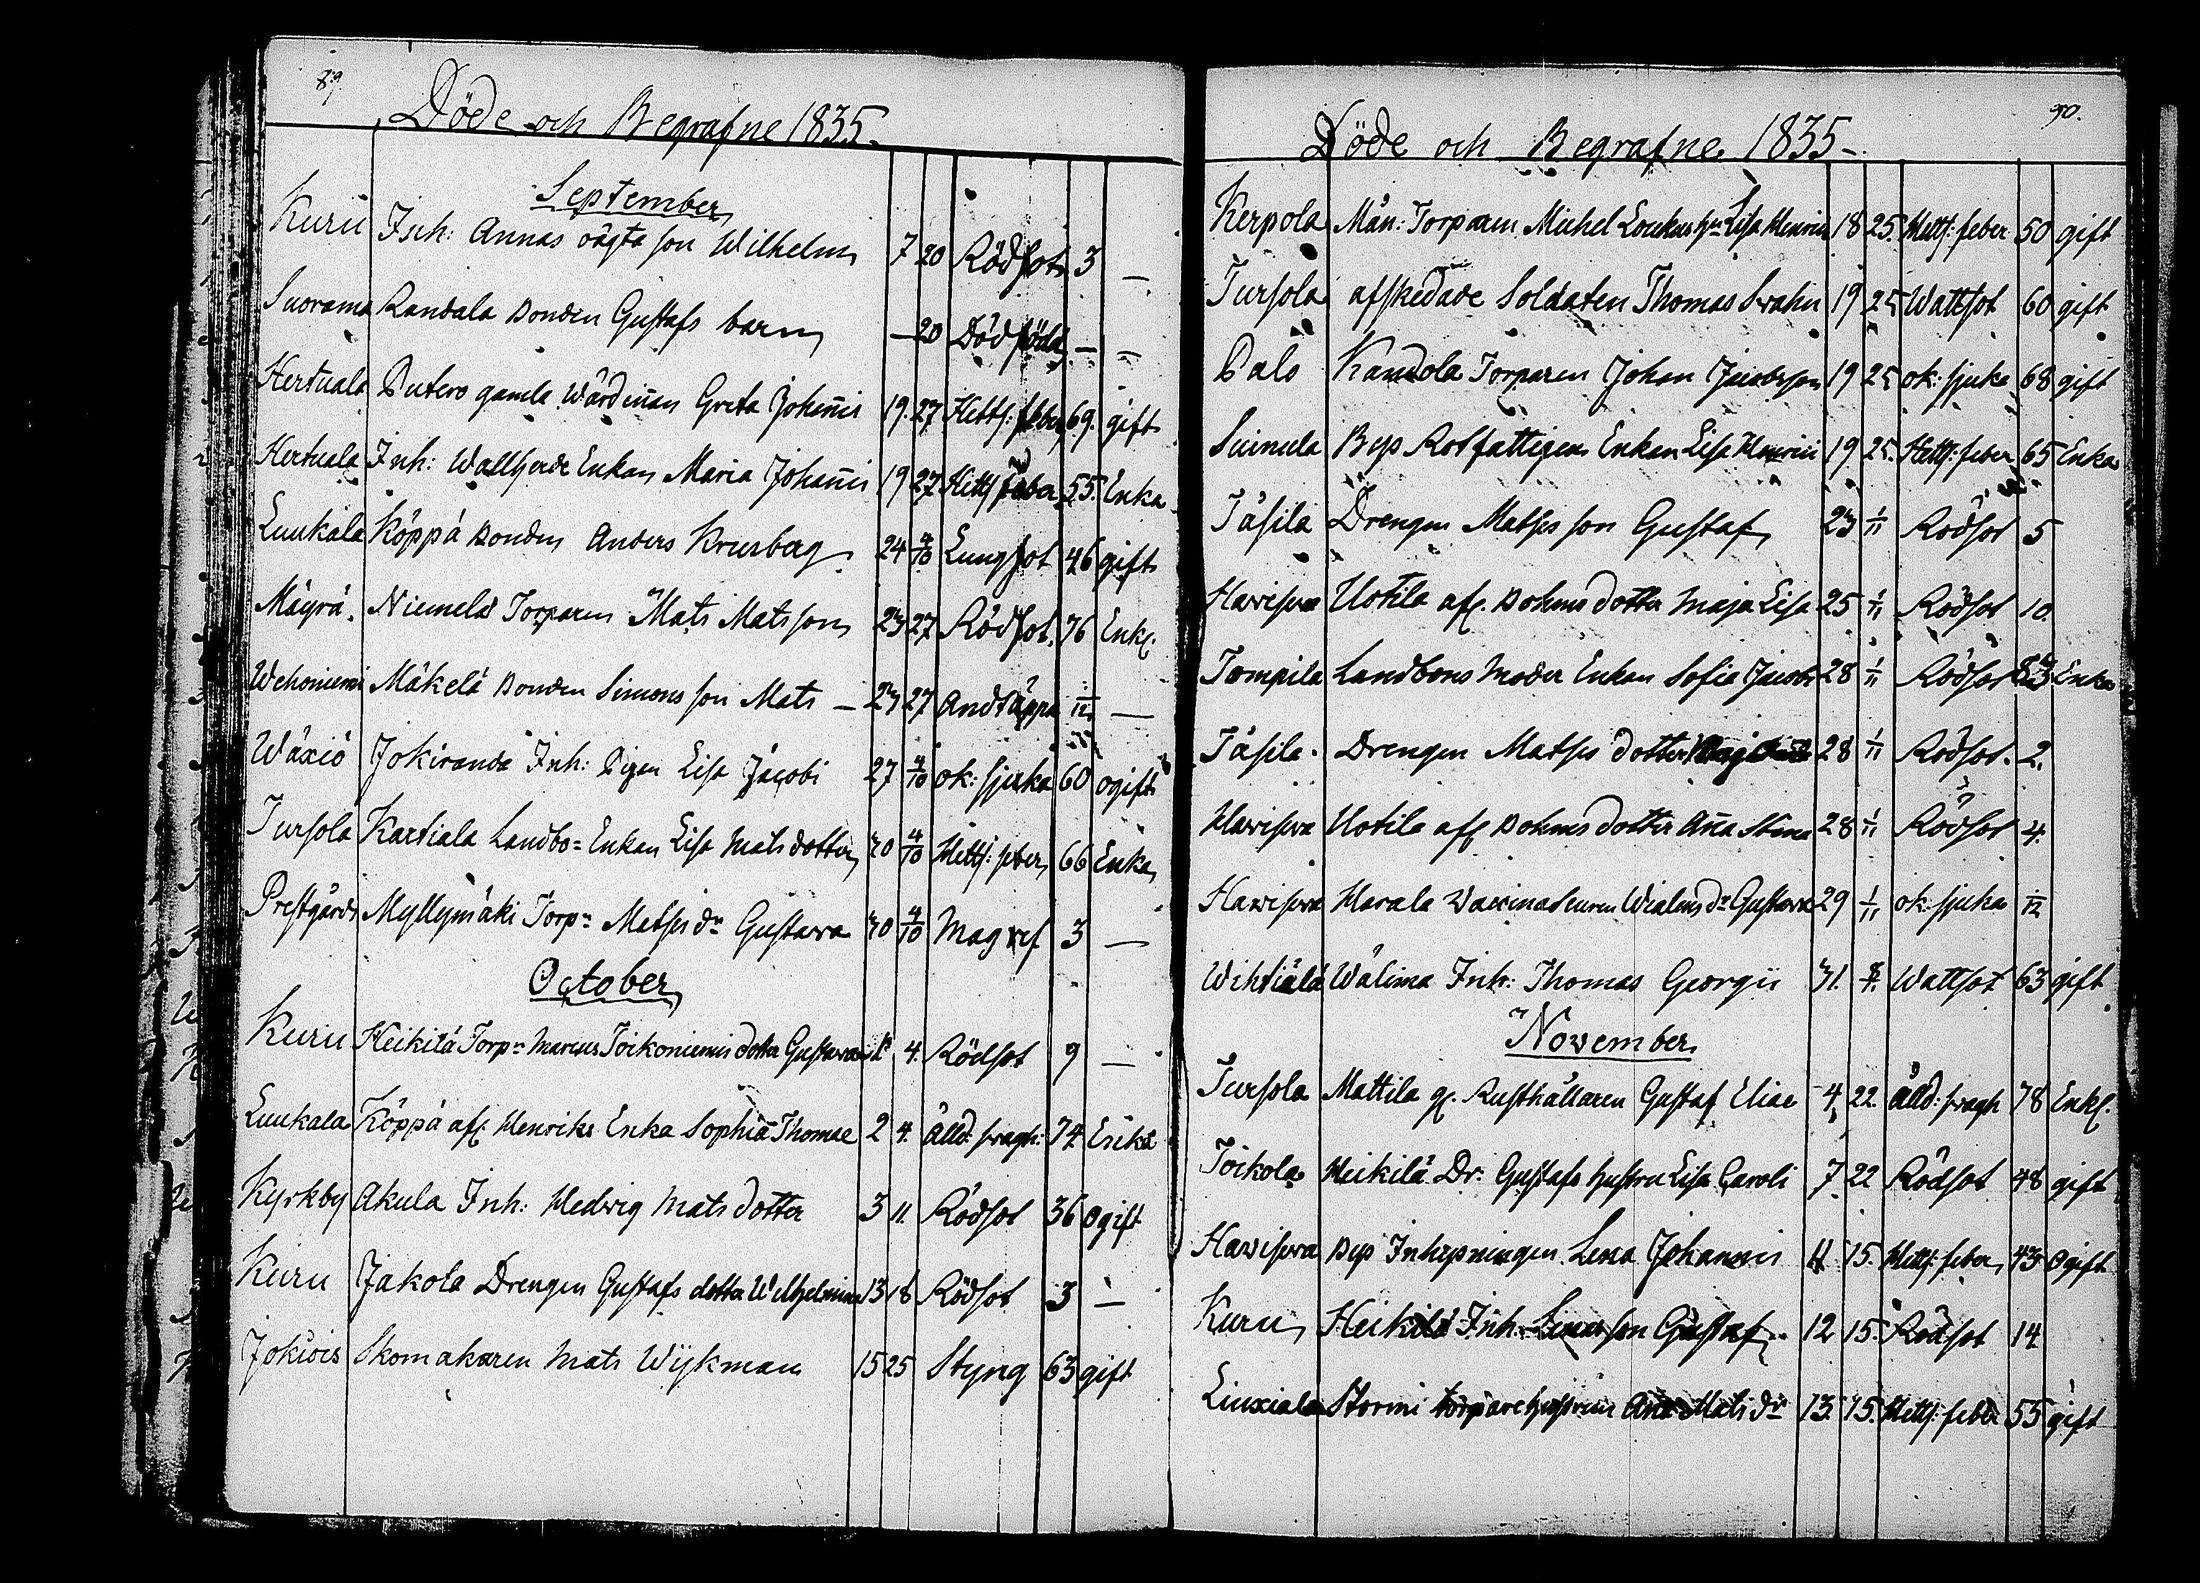 89.
Döde och Begrafne 1835.
September
Kuru Inh: Annas oägta son Wilhelm 7 20 Rödsot 3 —
Suorama Randala Bonden Gustafs barn — 20 Dödfödd — —
Hertuala Putero gamla Wärdinnan Greta Johannis 19 27 Hetts: feber 69. gift
Hertuala Inh: Wallherde Enkan Maria Johannis 19 27 Hetts feber 55. Enka
Luukala Köppä Bonden Anders Krusberg 24 4/10 Lungsot 46 gift
Mäyrä. Niemelä Torparen Mats Matsson 23 27 Rödsot. 76 Enkl.
Wehoniemi Mäkelä Bonden Simons son Mats — 23 27 Andtäppa /12 —
Wäxiö Jokiranda Inh: Pigan Lisa Jacobi 27 4/10 ok: sjuka 60 ogift
Tursola Kartiala Landbo= Enkan Lisa Mats dotter 30 4/10 Hetts: feber 66 Enka
Prestgårds Myllymäki Torp:n Matsis dr Gustava 30 4/10 Mag ref 3 —
October
Kuru Heikilä Torp:n Marcus Toikoniemis dotter Gustava 1 4. Rödsot 9 —
Luukala Köppä afl. Henriks Enka Sophia Thomae 2 4. Ålld: svagh: 74 Enka
Kyrkby Akula Inh: Hedvig Mats dotter 3 11. Rödsot 36 Ogift
Kuru Jakola Drengen Gustafs dotter Wilhelmina 13 18 Rödsot 3 —
Jokiois Skomakaren Mats Wijkman 15 25 Styng 63 gift
90.
Döde och Begrafne 1835 –
Kerpola Män: Torparen Michel hu Lisa Henrici 18 25. Hetts: feber 50 gift
Tursola afskedade Soldaten Thomas Svahn 19 25 Wattsot 60 gift
Palo Kandola Torparen Johan Jacobsson 19 25 ok: sjuka 68 gift
Suinula Bys Rotfattigen Enkan Lisa Henrici 19 25. Hetts: feber 65 Enka
Täsila Drengen Matsis son Gustaf 23 1/11 Rödsot 5
Haviseva Uotila afl. Bohms dotter Maja Lisa 25 1/11 Rödsot 10.
Tompila Landbons Moder Enkan Sofia Jacobs 28 1/11 Rödsot Enka
Täsila. Drengen Matsis dotter 28 1/11 Rödsot. 2.
Haviseva Uotila afl Bohms dotter Anna Stina 28 1/11 Rödsot 4.
Havisevа Harala Vaccinateuren Wialens dr Gustava 29 1/11 ok: sjuka /12
Wihtiälä Wälimä Inh: Thomas Georgii 31. 8/11 Wattsot 63 gift
November
Tursola Mattila gl. Rusthållaren Gustaf Eliae 4, 22. Ålld: svagh 78 Enkl.
Toikola Heikilä Dr: Gustafs hustru Lisa Caroli 7. 22 Rödsot 48 gift
Havisevа Bys Inhysningen Lena Johannis 11 15. Hetts: feber 43 Ogift
Kuru Heikilä Inh: Linas son Gustaf 12 15. Rödsot 14
Liuxiala Stormi torpare hustrun Anna Mats dr 13. 15. Hetts: feber 55 gift